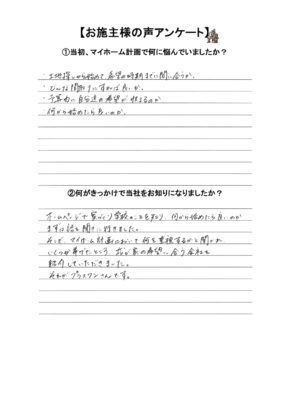 【お施主様の声アンケート】
①当初、マイホーム計画で何に悩んでいましたか？
・土地探しから始めて希望の時期までに間に合うか。
・どんな間取りにすれば良いか。
・予算内に自分達の希望が収まるのか
・何から始めたら良いか。
②何がきっかけで当社をお知りになりましたか？
ホームページで家づくり学校のことを知り、何から始めたら良いのか
まずは話を聞きに行きました。
そこで、マイホーム計画において何を重視するかと聞かれ
いくつか挙げたところ、我が家の希望に合う会社を
紹介していただきました。
それがプラスワンさんです。